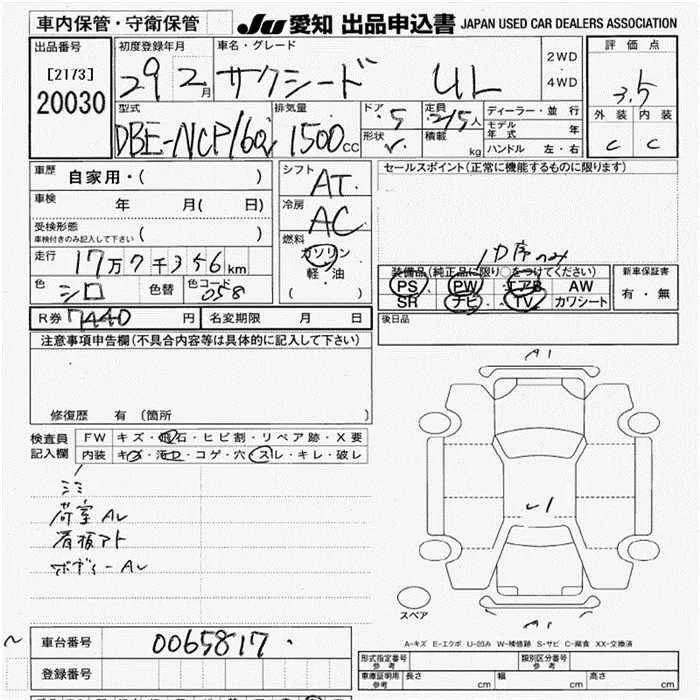 車内保管・守衛保管 JU 愛知 出品申込書 JAPAN USED CAR DEALERS ASSOCIATION
出品番号 [2173] 20030
初度登録年月 29 2月
車名・グレード サクシード UL
2WD ・ 4WD
評価点 3.5
外装 C 内装 C
型式 DBE-NCP160V
排気量 1500cc
ドア 5 形状 V
定員 2/5人 積載 kg
ディーラー・並行
モデル年式 年
ハンドル 左・右
車歴 自家用・( )
車検 年 月( 日)
受検形態 車検付きのみ記入して下さい ( )
走行 17万7千356km
色 シロ 色替 色コード 058
シフト AT
冷房 AC
燃料 ガソリン 軽・油 ( )
セールスポイント(正常に機能するものに限ります)
D席のみ
装備品(純正品に限り○をつけてください)
PS PW エアB AW
SR ナビ TV カワシート
新車保証書 有・無
後日品
R券 7440 円 名変期限 月 日
注意事項申告欄(不具合内容等は具体的に記入して下さい)
修復歴 有(箇所 )
検査員記入欄
FW キズ・飛石・ヒビ割・リペア跡・X要
内装 キズ・汚れ・コゲ・穴・スレ・キレ・破レ
荷室AU
看板アト
ボディーAU
A1
U1
A1
スペア
A-キズ E-エクボ U-凹み W-補修跡 S-サビ C-腐食 XX-交換済
車台番号 0065817
登録番号
形式指定番号 参考 類別区分番号 参考
車庫証明用 参考 長さ cm 幅 cm 高さ cm